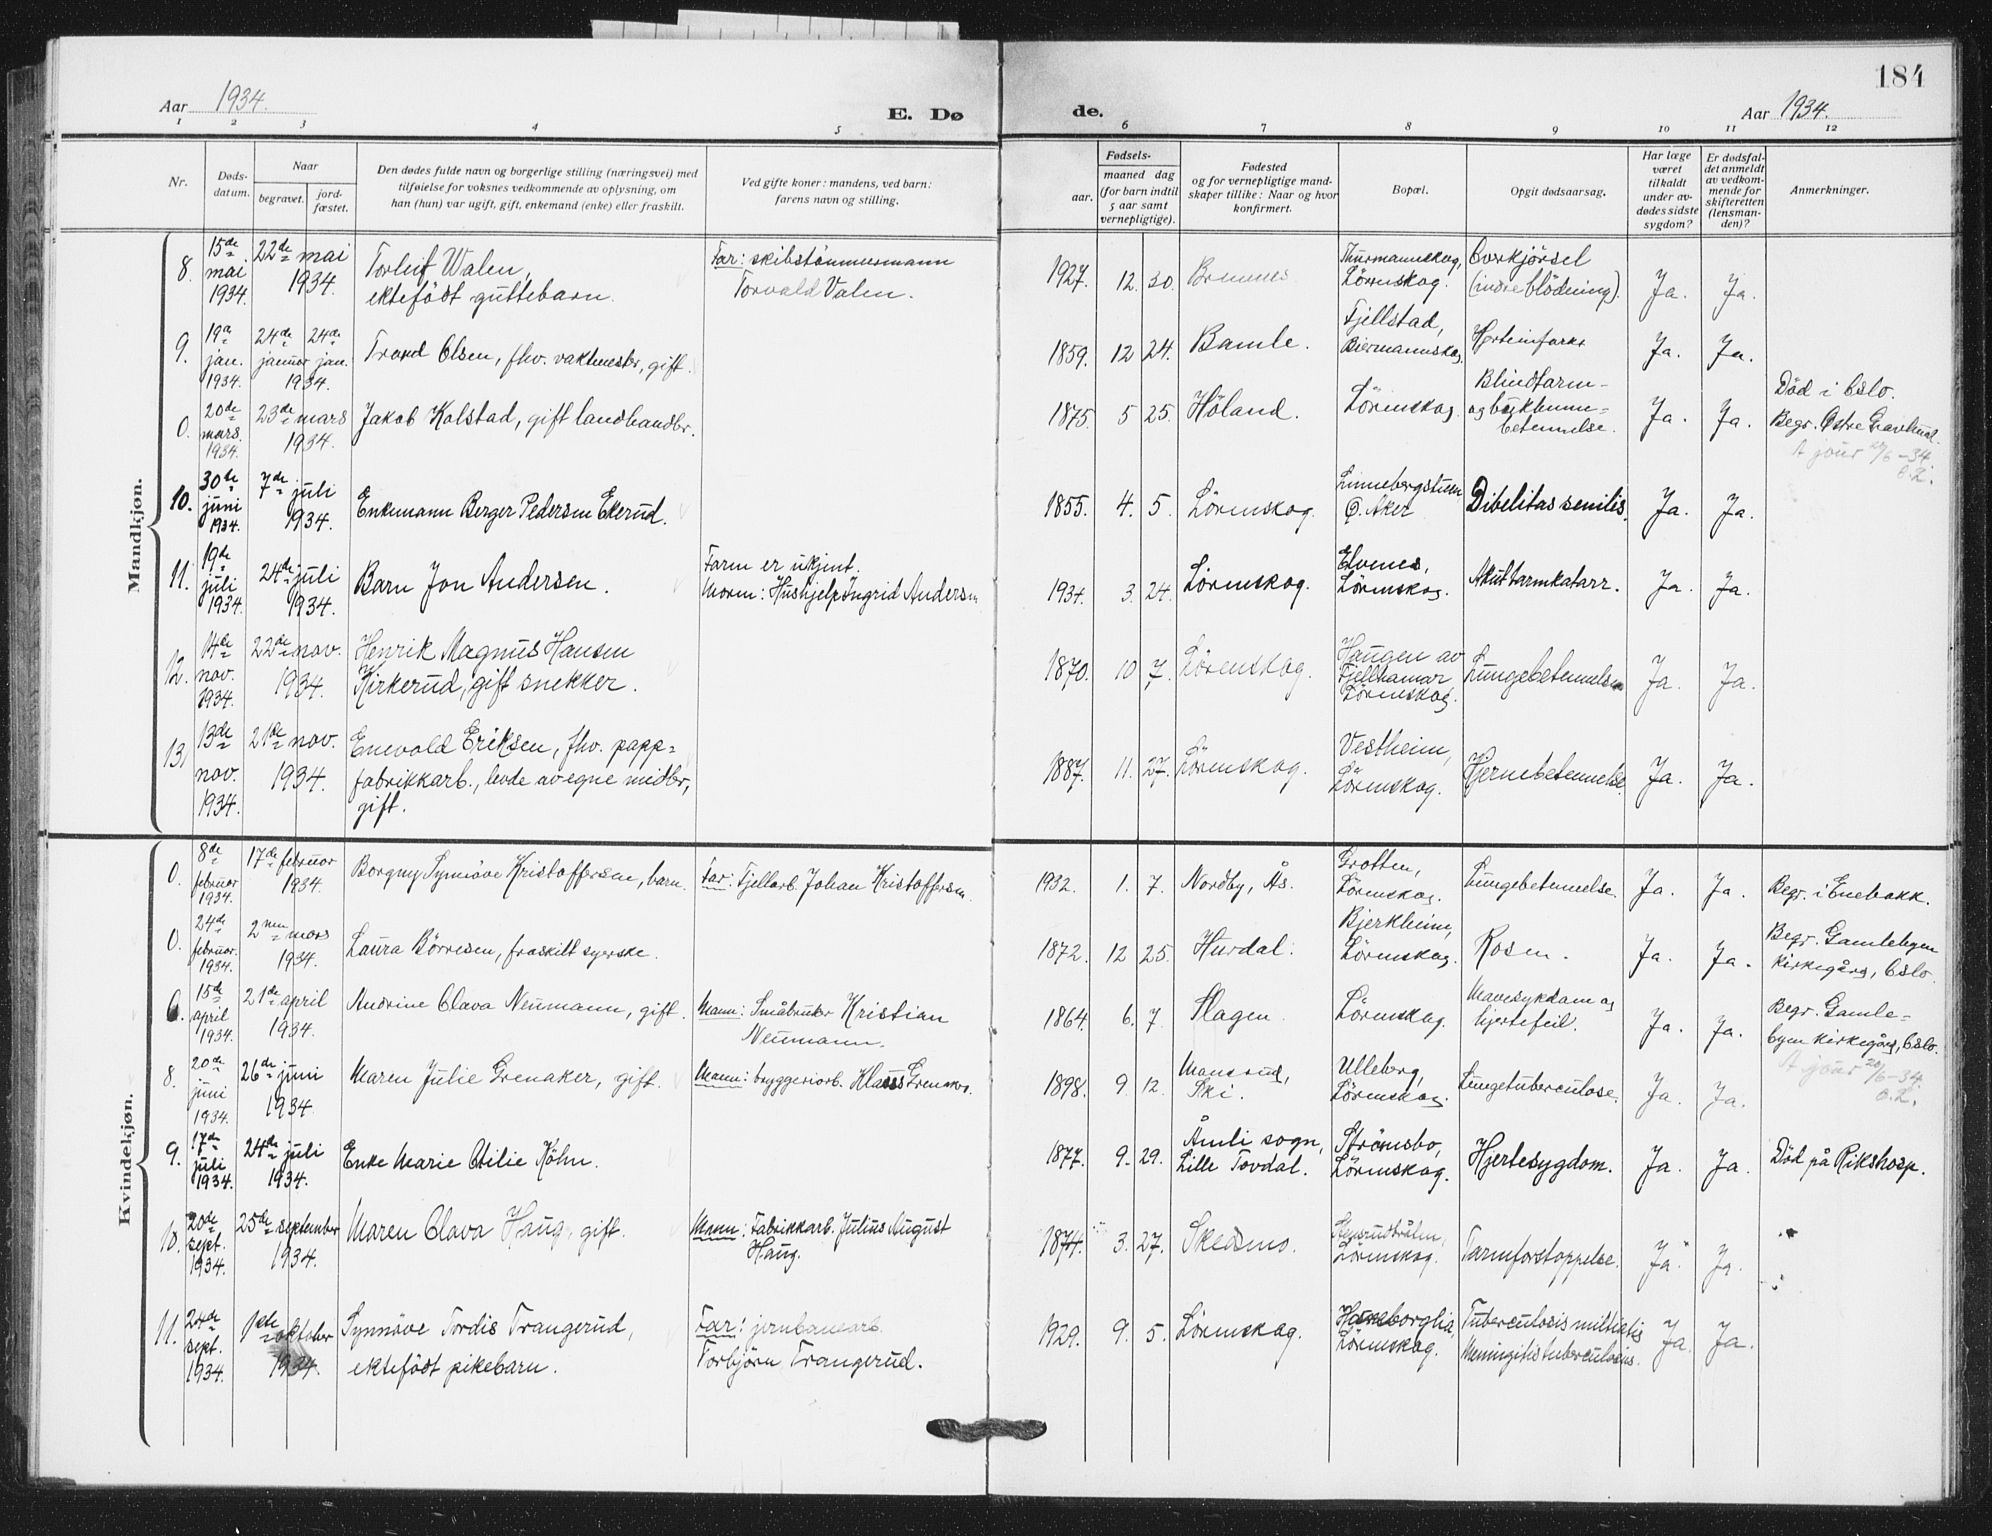 184
Aar 1934.
E. Døde.
Aar 1934.
1 2 3 4 5 6 7 8 9 10 11 12
Nr.
Døds-
datum.
Naar
begravet.
jord-
fæstet.
Den dødes fulde navn og borgerlige stilling (næringsvei) med
tilføielse for voksnes vedkommende av oplysning, om
han (hun) var ugift, gift, enkemand (enke) eller fraskilt.
Ved gifte koner: mandens, ved barn:
farens navn og stilling.
Fødsels-
aar.
maaned dag
(for barn indtil
5 aar samt
vernepligtige).
Fødested
og for vernepligtige mand-
skaper tillike: Naar og hvor
konfirmert.
Bopæl.
Opgit dødsaarsag.
Har læge
været
tilkaldt
under av-
dødes sidste
sygdom?
Er dødsfal-
det anmeldt
av vedkom-
mende for
skifteretten
(lensman-
den)?
Anmerkninger.
Mandkjøn.
8. 15de mai 1934. 22de mai 1934.
Torleif Walen,
ektefödt guttebarn.
Far: skibstömmermann
Torvald Valen.
1927. 12. 30.
Thurmannskog,
Lörenskog.
Overkjörsel
(indre blödning).
Ja. Ja.
9. 19de jan. 1934. 24de januar 24de jan. 1934.
Trond Olsen, fhv. vaktmester, gift.
1859. 12 24. Bamle.
Fjellstad,
Biermannskog.
Ja. Ja.
0. 20de mars. 1934. 23de mars 1934.
Jakob Kolstad, gift landhandler.
1875. 5 25. Höland. Lörenskog.
Blindtarm-
og bukhinne-
betennelse.
Ja. Ja.
Död i Oslo.
Begr. Østre Gravlund.
A jour 20/6-34
10. 30de juni 1934. 7de juli 1934.
Enkemann Berger Pedersen Ekerud.
1855. 4. 5. Lörenskog.
Linnebergstuen
Ø. Aker
Dibelitas senilis.
Ja. Ja.
11. 19de juli 1934. 24de juli 1934.
Barn Jon Andersen.
Faren er ukjent.
Moren: Hushjelp Ingrid Andersen
1934. 3. 24. Lörenskog.
Elvenes,
Lörenskog.
Akut tarmkatarr.
Ja. Ja.
12. 14de nov. 1934. 22de nov. 1934.
Henrik Magnus Hansen
Kirkerud, gift snekker.
1870. 10 7. Lörenskog.
Haugen av
Fjellhamar
Lörenskog.
Lungebetennelse
Ja. Ja.
13, 13de nov. 1934. 21de nov. 1934.
Enevold Eriksen, fhv. papp=
fabrikkarb., levde av egne midler,
gift.
1887. 11. 27. Lörenskog.
Vestheim,
Lörenskog.
Hjernebetennelse.
Ja. Ja.
Kvindekjøn.
0. 8de februar 1934. 17de februar 1934.
Borgny Synnöve Kristoffersen, barn.
Far: Fjellarb. Johan Kristoffersen.
1932. 1. 7. Nordby, Ås.
Grotten,
Lörenskog.
Lungebetennelse.
Ja. Ja.
Begr. i Enebakk.
0. 24de februar. 1934. 2nen mars 1934.
Laura Börresen, fraskilt syerske.
1872. 12 25. Hurdal.
Bjerkheim,
Lörenskog.
Rosen.
Ja. Ja.
Begr. Gamlebyen
kirkegård, Oslo.
0. 15de april 1934. 21de april 1934.
Andrine Olava Neumann, gift.
Mann: Småbruker Kristian
Neumann.
1864. 6. 7. Slagen.
Lörenskog.
Mavesykdom og
hjertefeil.
Ja. Ja.
Begr. Gamle-
byen kirkegård, Oslo.
A jour 20/6-34.
8. 20de juni 1934. 26de juni 1934.
Maren Julie Grenaker, gift.
Mann: bryggeriarb. Klaus Grenaker.
1898. 9. 12.
Ski.
Ulleberg,
Lörenskog.
Lungetuberculose.
Ja. Ja.
9. 17de juli 1934. 24de juli 1934.
Enke Marie Otilie Köhn.
1877. 9. 29.
Åmli sogn,
Lille Tovdal.
Strömsbo,
Lörenskog.
Hjertesygdom.
Ja. Ja.
Död på Rikshosp.
10. 20de sept. 1934. 25de september 1934.
Maren Olava Haug, gift.
Mann: Fabrikkarb. Julius August
Haug.
1874. 3. 27. Skedsmo.
Lörenskog.
Tarmforstoppelse.
Ja Ja.
11. 24de sept. 1934. 1ste oktober 1934.
Synnöve Tordis Trangerud,
ektefödt pikebarn.
Far: jernbanearb.
Torbjörn Trangerud.
1929. 9. 5. Lörenskog.
Haneborglia,
Lörenskog.
Tuberculosis
Meningitis tuberculosis.
Ja Ja.